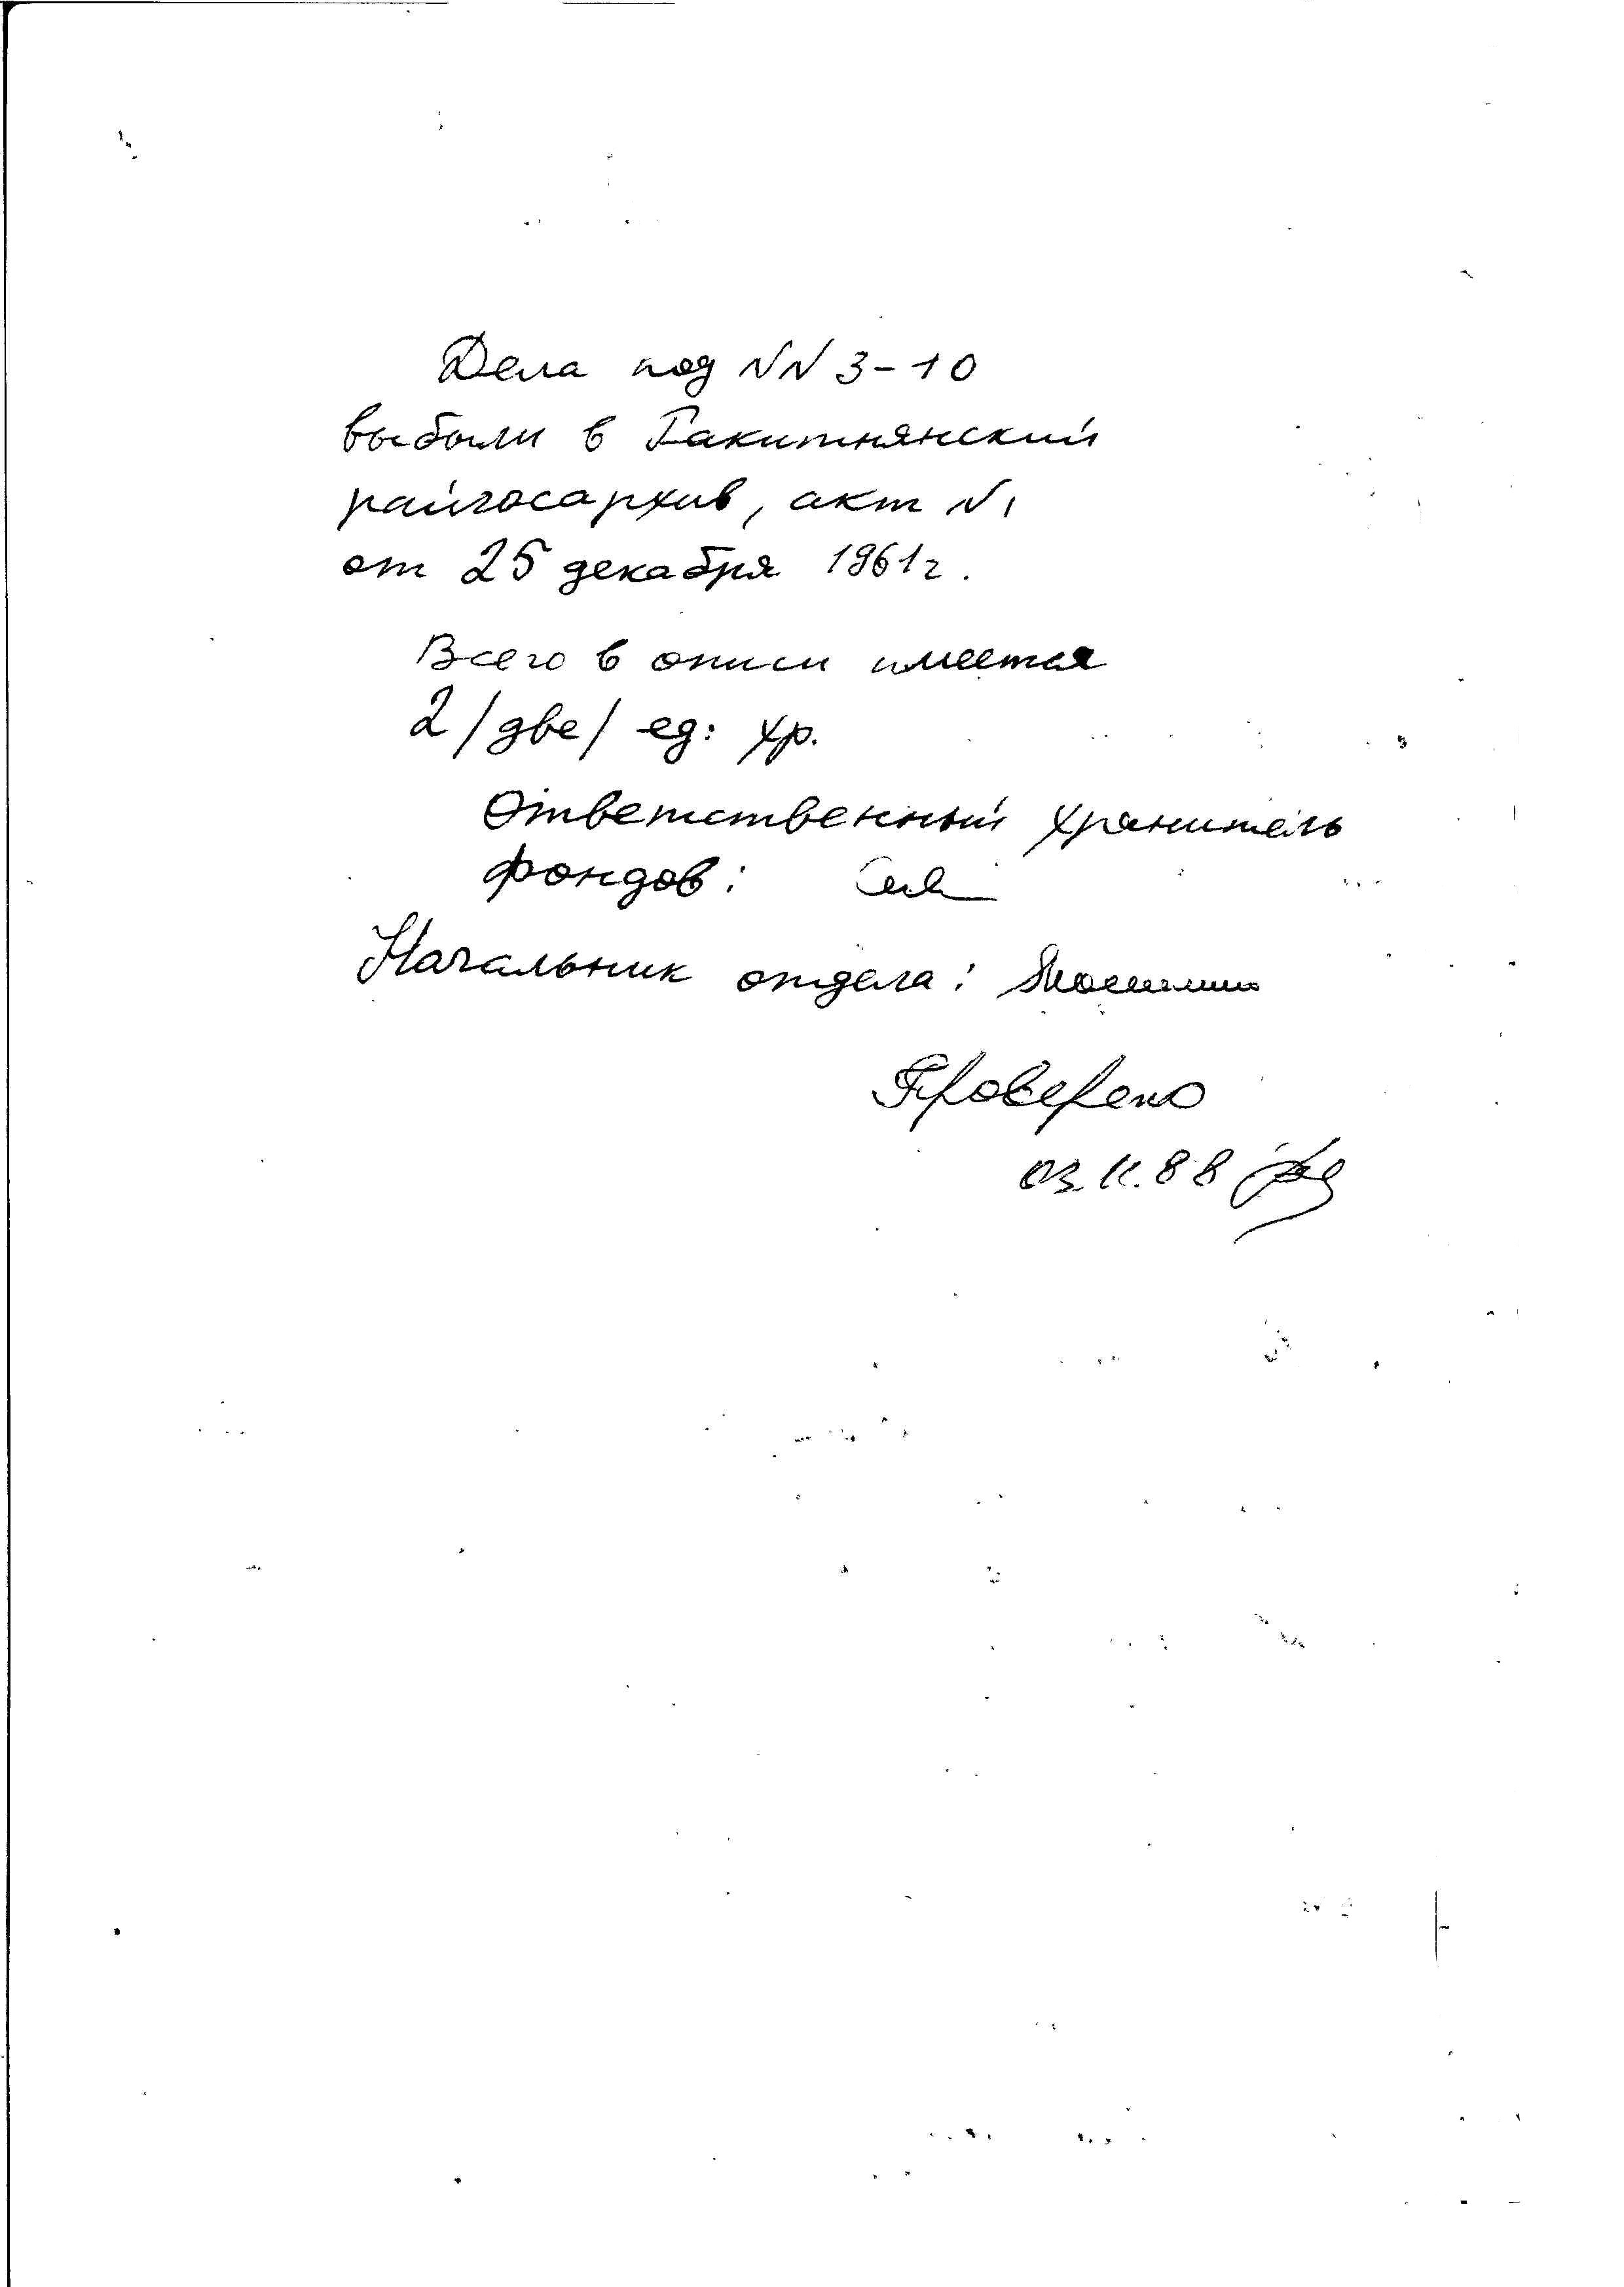 Дела под NN 3-10
выбыли в Ракитнянский
райгосархив, акт N1
от 25 декабря 1961г.
Всего в описи имеется
2/две/ ед. хр.
Ответственный хранитель
фондов:
Начальник отдела:
Проверено
03.11.88